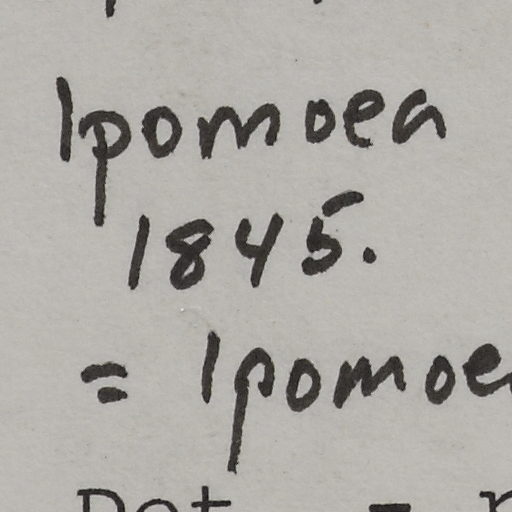 Ipomoea
1845.
= Ipomoe
Det. -